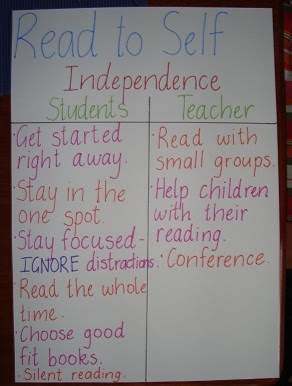 Read to Self
Independence
Students
·Get started
right away.
·Stay in the
one spot.
·Stay focused-
IGNORE distractions.
·Read the whole
time.
·Choose good
fit books.
·Silent reading.
Teacher
·Read with
small groups.
·Help children
with their
reading.
·Conference.